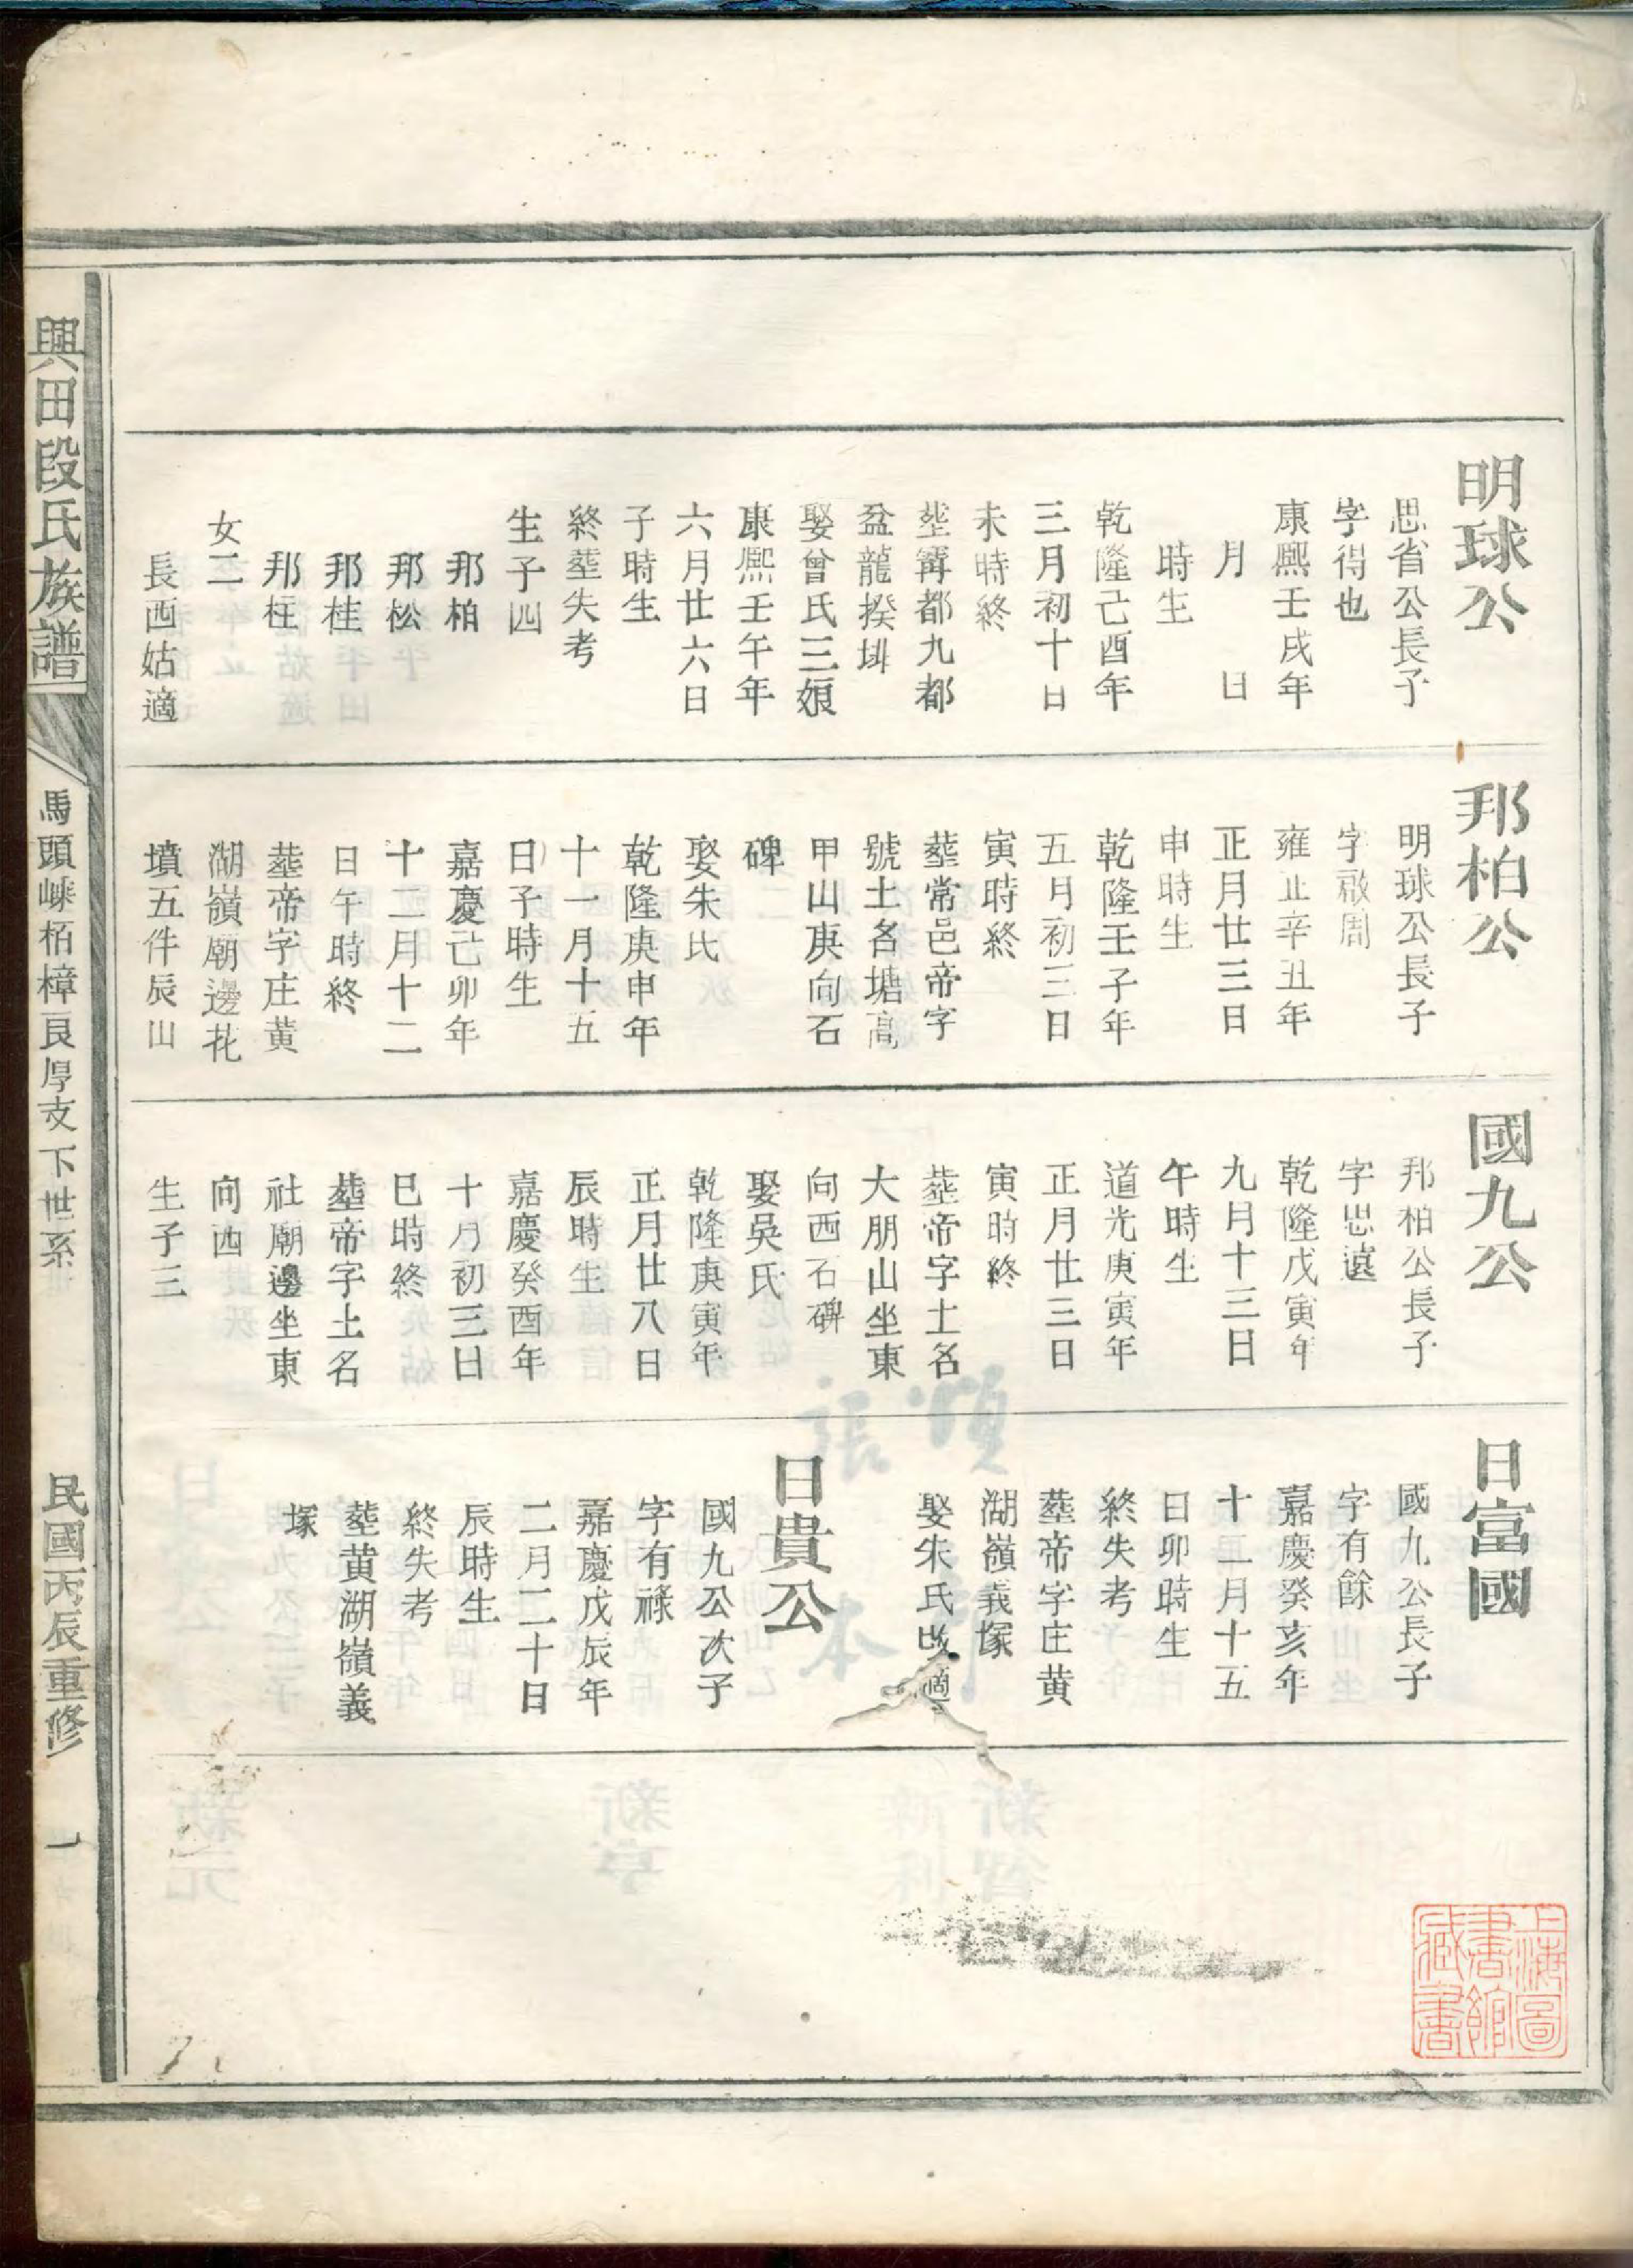 明球公
思省公長子
字得也
康熙壬戌年
月　日
時生
乾隆己酉年
三月初十日
未時終
塟寗都九都
盆龍揆坳
娶曾氏三娘
康熙壬午年
六月廿六日
子時生
終塟失考
生子四
邦柏
邦松
邦桂
邦枉
女二
長酉姑適
邦柏公
明球公長子
字啟周
雍正辛丑年
正月廿三日
申時生
乾隆壬子年
五月初三日
寅時終
塟常邑帝字
號土名塘高
甲山庚向石
碑
娶朱氏
乾隆庚申年
十一月十五
日子時生
嘉慶己卯年
十二月十二
日午時終
塟帝字庄黄
湖嶺廟邊花
墳五件辰山
國九公
邦柏公長子
字思遠
乾隆戊寅年
九月十三日
午時生
道光庚寅年
正月廿三日
寅時終
塟帝字土名
大朋山坐東
向西石碑
娶吳氏
乾隆庚寅年
正月廿八日
辰時生
嘉慶癸酉年
十月初三日
巳時終
塟帝字土名
社廟邊坐東
向西
生子三
日富國
國九公長子
字有餘
嘉慶癸亥年
十二月十五
日卯時生
終失考
塟帝字庄黄
湖嶺義塚
娶朱氏改適
日貴公
國九公次子
字有祿
嘉慶戊辰年
二月二十日
辰時生
終失考
塟黄湖嶺義
塚
興田段氏族譜
馬頭 栢樟良厚支下世系
民國丙辰重修
一
上海圖
書館
藏書